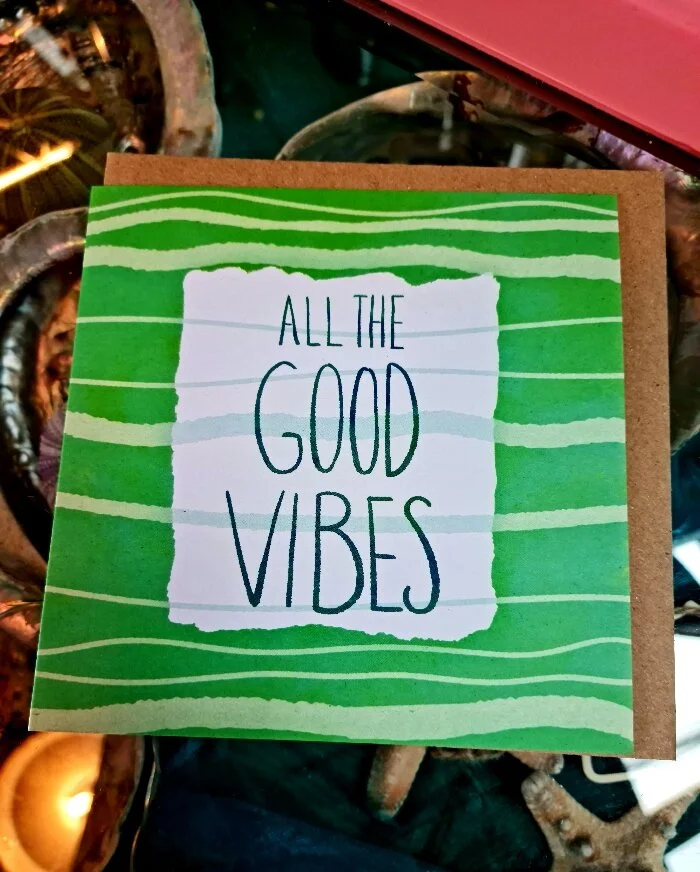 ALL THE
GOOD
VIBES